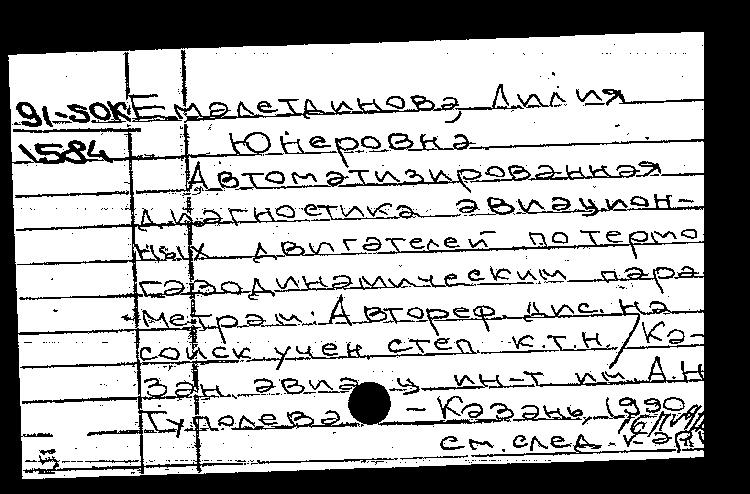 91-5ОК Емалетдинова, Лилия
1584 Юнеровна
Автоматизированная
диагностика авиацион-
ных двигателей по термо
газодинамическим пара
метрам: Автореф. дис. на
соиск учен степ. к.т.н. / Ка-
зан авиа ин-т им. А.Н
Туполева - Казань, 1990
см. след. карт